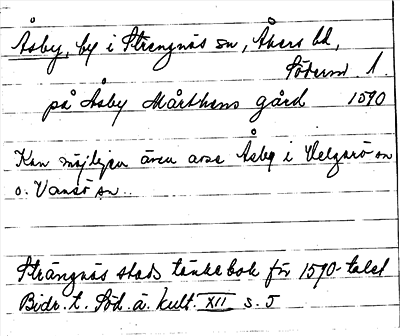 Åsby, by i Strengnäs sn, Åkers hd,
Söderml.
på Åsby Mårthens gård 1590
Kan möjligen även avse Åsby i Helgarö sn
o. Vansö sn.
Strängnäs stads tänkebok för 1590-talet
Bidr. t. Söd. ä. kult. XII s. 5